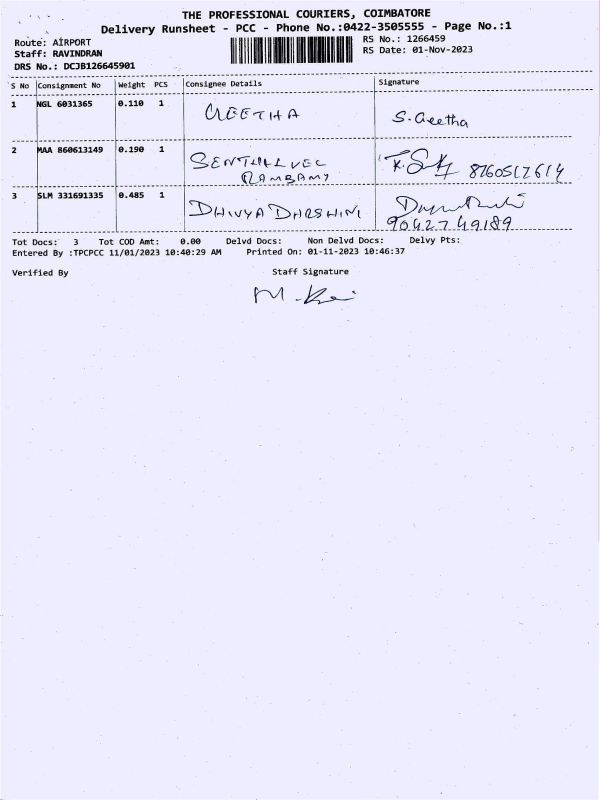 THE PROFESSIONAL COURIERS, COIMBATORE
Delivery Runsheet - PCC - Phone No.:0422-3505555 - Page No.:1
Route: AIRPORT
RS No.: 1266459
Staff: RAVINDRAN
RS Date: 01-Nov-2023
DRS No.: DCJB126645901
S No Consignment No Weight PCS Consignee Details Signature
1 NGL 6031365 0.110 1 GEETHA S. Geetha
2 MAA 860613149 0.190 1 SENTHILVEL 8760517614
3 SLM 331691335 0.485 1 DHIVYA DHARSHINI
9042749189
Tot Docs: 3 Tot COD Amt: 0.00 Delvd Docs: Non Delvd Docs: Delvy Pts:
Entered By :TPCPCC 11/01/2023 10:40:29 AM Printed On: 01-11-2023 10:46:37
Verified By Staff Signature